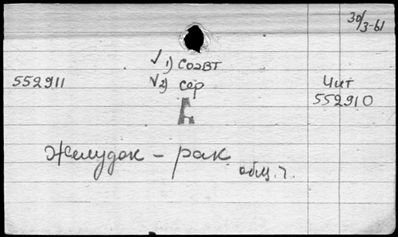 30/3-61
√ 1) СОЭВТ
552911 √ 2) сер Чит
552910
Б
Желудок – рак
общ. ч.